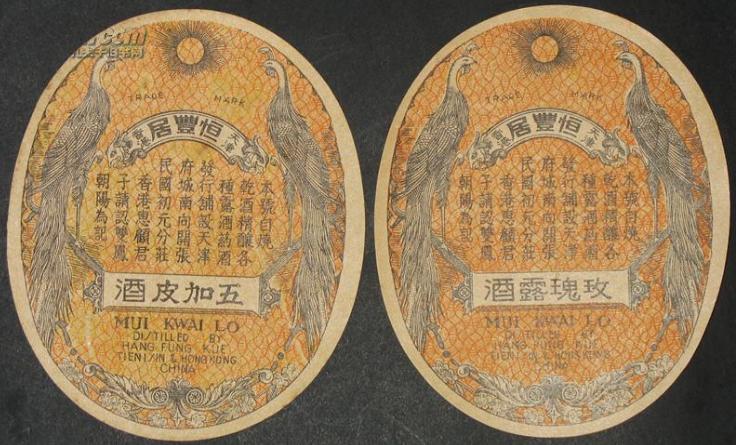 TRADE MARK
天津 恒豐居 香港
本號自燒
乾酒精釀各
種露酒葯酒
發行鋪設天津
府城南向開張
民國初元分莊
香港惠顧君
子請認雙鳳
朝陽為記
五加皮酒
MUI KWAI LO
DISTILLED BY
HANG FUNG KUE
TIENTSIN & HONGKONG
CHINA
TRADE MARK
天津 恒豐居 香港
本號自燒
乾酒精釀各
種露酒葯酒
發行鋪設天津
府城南向開張
民國初元分莊
香港惠顧君
子請認雙鳳
朝陽為記
玫瑰露酒
MUI KWAI LO
DISTILLED BY
HANG FUNG KUE
TIENTSIN & HONGKONG
CHINA